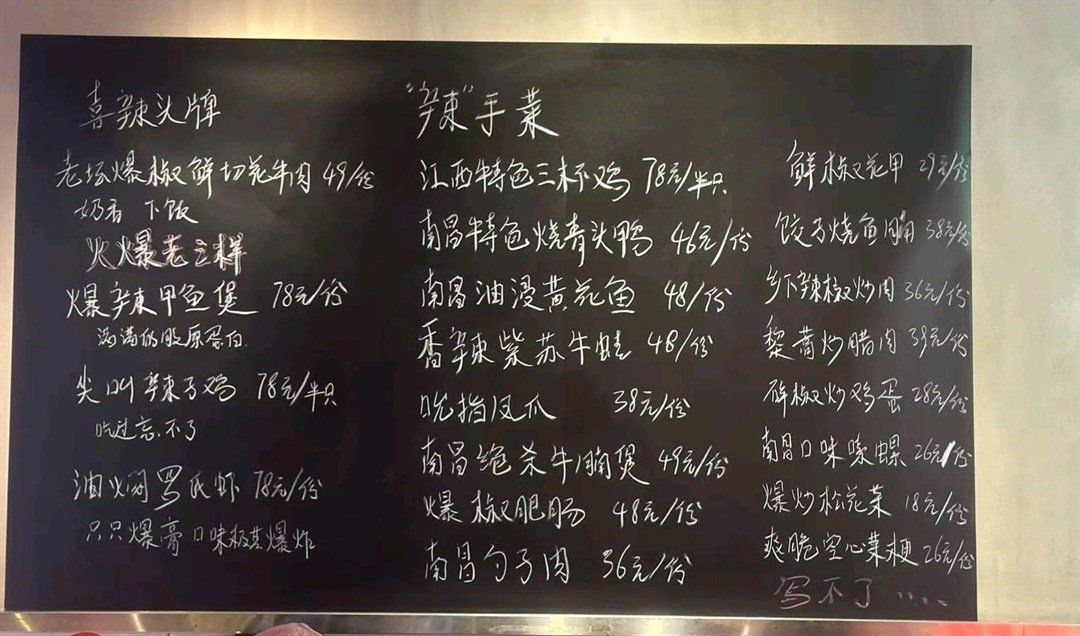 喜辣头牌
老坛爆椒鲜切花牛肉 49/份
奶香 下饭
火爆老三样
爆辣甲鱼煲 78元/份
满满的胶原蛋白.
尖叫辣子鸡 78元/半只
吃过忘不了
油焖罗氏虾 78元/份
只只爆膏 口味极其爆炸
"辣"手菜
江西特色三杯鸡 78元/半只
南昌特色烧青头鸭 46元/份
南昌油浸黄花鱼 48/份
香辣紫苏牛蛙 48/份
吮指凤爪 38元/份
南昌绝杀牛腩煲 49元/份
爆椒肥肠 48元/份
南昌勺子肉 36元/份
鲜椒花甲 29元/份
饺子烧鱼 38元/份
乡下辣椒炒肉 36元/份
藜蒿炒腊肉 39元/份
椒炒鸡蛋 28元/份
南昌口味嗦螺 26元/份
爆炒松花菜 18元/份
爽脆空心菜梗 26元/份
写不了....